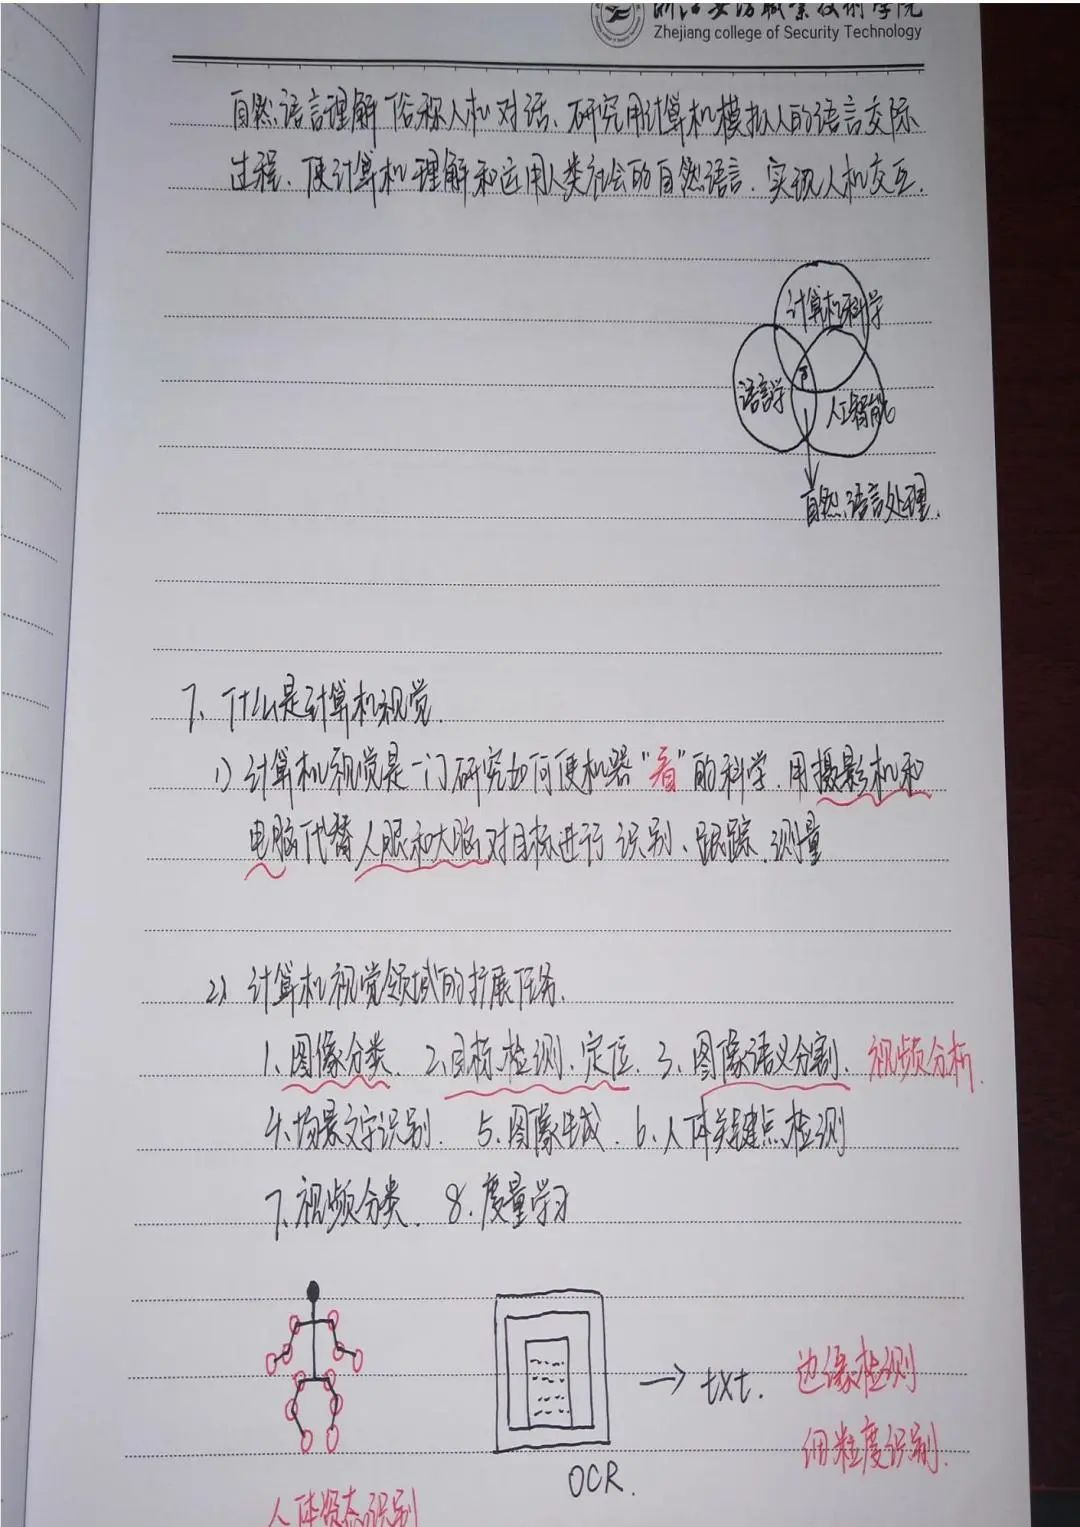 浙江安防职业技术学院
Zhejiang college of Security Technology
自然语言理解俗称人机对话、研究用计算机模拟人的语言交际
过程、使计算机理解和运用人类社会的自然语言、实现人机交互.
计算机科学
语言学
人工智能
自然语言处理.
7、什么是计算机视觉.
1) 计算机视觉是一门研究如何使机器“看”的科学、用摄影机和
电脑代替人眼和大脑对目标进行识别、跟踪、测量
2) 计算机视觉领域的扩展任务.
1、图像分类. 2、目标检测、定位. 3、图像语义分割. 视频分析.
4、场景文字识别. 5、图像生成. 6、人体关键点检测
7、视频分类. 8、度量学习
txt.
边缘检测
细粒度识别.
OCR.
人体姿态识别